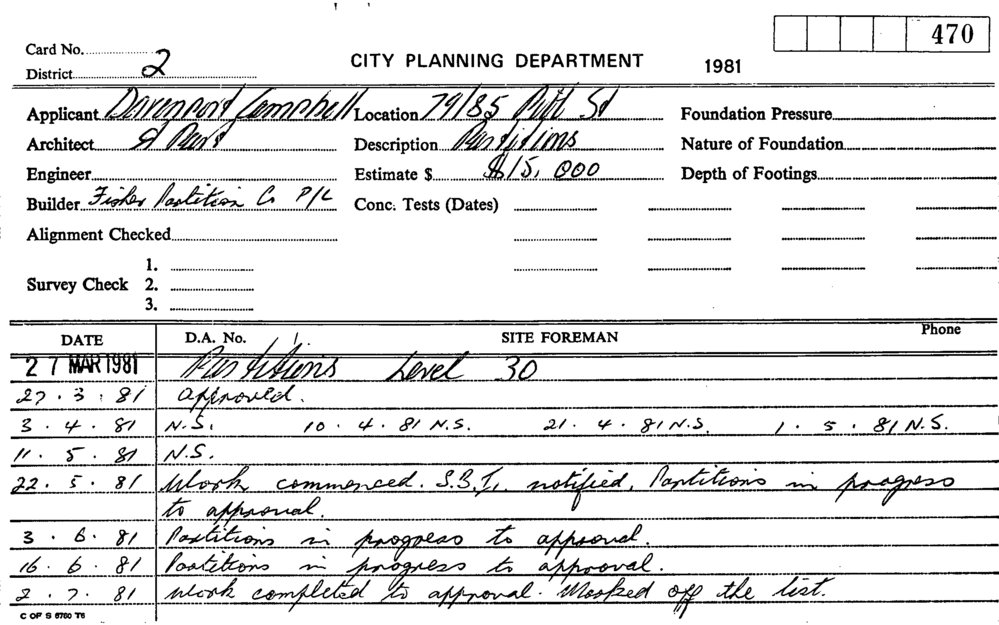 470
Card No.
District 2
CITY PLANNING DEPARTMENT 1981
Applicant Davenport Campbell Location 79/85 Pitt St Foundation Pressure
Architect & Part Description Partitions Nature of Foundation
Engineer Estimate $ $15,000 Depth of Footings
Builder Fisher Partition Co P/L Conc. Tests (Dates)
Alignment Checked
1.
Survey Check 2.
3.
DATE D.A. No. SITE FOREMAN Phone
27 MAR 1981 Partitions Level 30
27.3.81 approved.
3.4.81 N.S. 10.4.81 N.S. 21.4.81 N.S. 1.5.81 N.S.
11.5.81 N.S.
22.5.81 Work commenced. S.B.I. notified. Partitions in progress
to approval.
3.6.81 Partitions in progress to approval.
16.6.81 Partitions in progress to approval.
2.7.81 Work completed to approval. Marked off the list.
C OF S 6760 T6